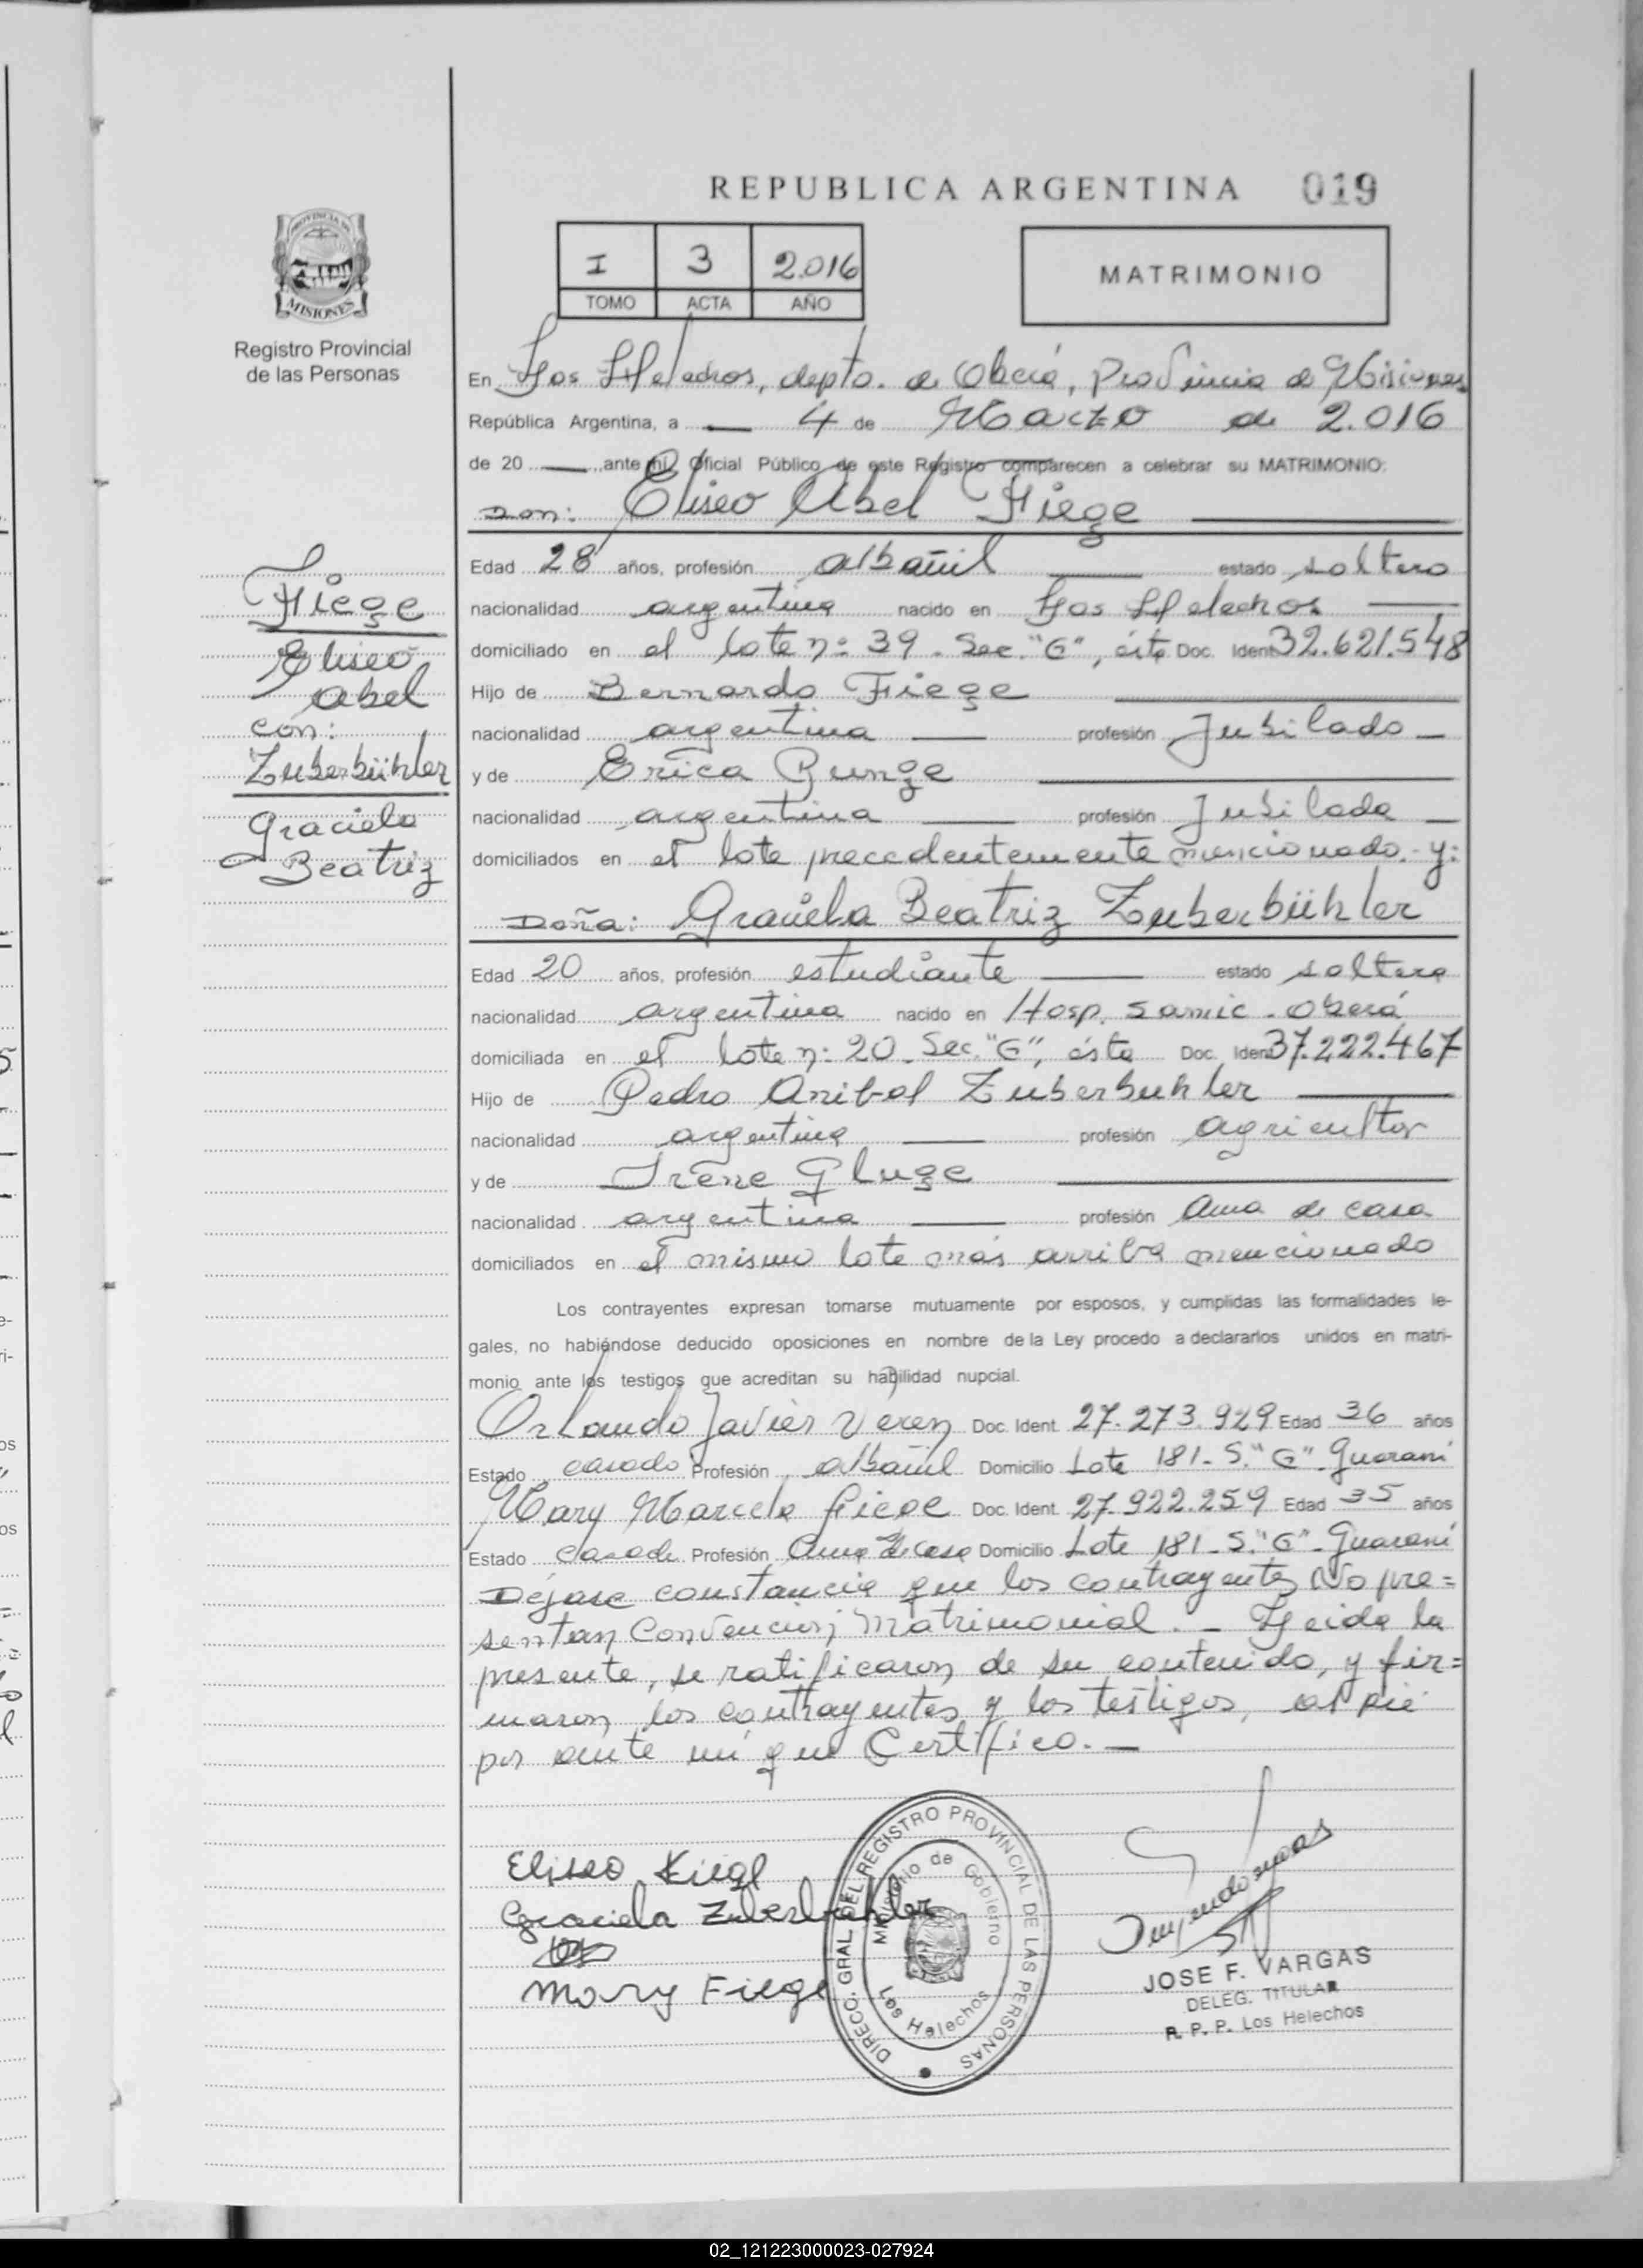 REPUBLICA ARGENTINA 019
PROVINCIA DE
MISIONES
Registro Provincial
de las Personas
I 3 2.016
TOMO ACTA AÑO
MATRIMONIO
En Los Helechos, depto. de Oberá, Provincia de Misiones
República Argentina, a — 4 de Marzo de 2.016
de 20 — ante mí, Oficial Público de este Registro comparecen a celebrar su MATRIMONIO:
Don: Eliseo Abel Fiege
Edad 28 años, profesión albañil estado soltero
nacionalidad argentina nacido en Los Helechos
domiciliado en el lote nº 39. Sec. "G", ésta Doc. Ident. 32.621.548
Hijo de Bernardo Fiege
nacionalidad argentina profesión Jubilado
y de Erica Runge
nacionalidad argentina profesión Jubilada
domiciliados en el lote precedentemente mencionado. y:
Doña: Graciela Beatriz Zuberbühler
Edad 20 años, profesión estudiante estado soltera
nacionalidad argentina nacido en Hosp. Samic. Oberá
domiciliada en el lote nº 20. Sec. "G", ésta Doc. Ident. 37.222.467
Hijo de Pedro Anibal Zuberbuhler
nacionalidad argentina profesión agricultor
y de Irene Gluge
nacionalidad argentina profesión Ama de casa
domiciliados en el mismo lote más arriba mencionado
Los contrayentes expresan tomarse mutuamente por esposos, y cumplidas las formalidades le-
gales, no habiéndose deducido oposiciones en nombre de la Ley procedo a declararlos unidos en matri-
monio ante los testigos que acreditan su habilidad nupcial.
Orlando Javier Doc. Ident. 27.273.929 Edad 36 años
Estado casado Profesión albañil Domicilio Lote 181. S. "G". Guaraní
Mary Marcela Fiege Doc. Ident. 27.922.259 Edad 35 años
Estado Casada Profesión Ama de casa Domicilio Lote 181. S. "G". Guaraní
Déjase constancia que los contrayentes No pre=
sentan Convención Matrimonial. — Leida la
presente, se ratificaron de su contenido, y fir=
maron los contrayentes y los testigos, al pie
por ante mí que Certifico. —
Fiege
Eliseo
Abel
con:
Zuberbühler
Graciela
Beatriz
Eliseo Fiege
Graciela Zuberbuhler
Mary Fiege
DIREC. GRAL. DEL REGISTRO PROVINCIAL DE LAS PERSONAS
Ministerio de Gobierno
Los Helechos
JOSE F. VARGAS
DELEG. TITULAR
R. P. P. Los Helechos
02_121223000023-027924